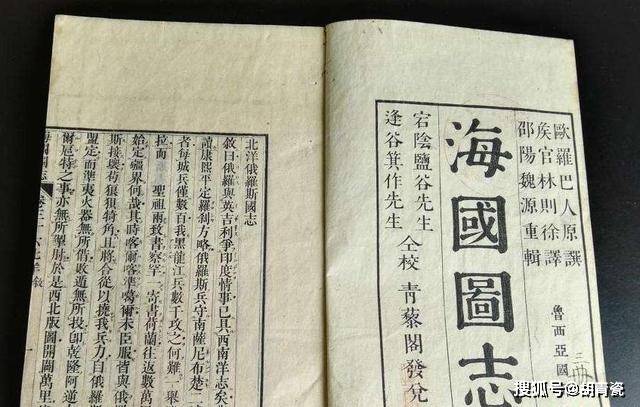 歐羅巴人原撰
矦官林則徐譯
邵陽魏源重輯
魯西亞國
海國圖志
宕陰鹽谷先生
逢谷箕作先生
仝校 青藜閣發兌
北洋俄羅斯國志
敘曰俄羅與英吉利爭印度情事已具西南洋志矣
讀康熙平定羅刹方略俄羅斯兵守南薩尼布楚二
者每城兵僅數百我黑龍江兵數千攻之何難一舉
拉而 聖祖兩致書察罕一寄書荷蘭往返數萬
始定疆界何哉其時喀爾喀準噶爾未臣服皆與俄
斯接壤苟狼狽犄角且將合從以擾我兵力自俄羅
盟定而準夷火器無所借敗遁無所投卬乾隆阿逆
爾扈特之事亦無所舉財於是西北版圖開闢萬里
海國圖志 卷三十六北洋
搜狐号@胡青瓷